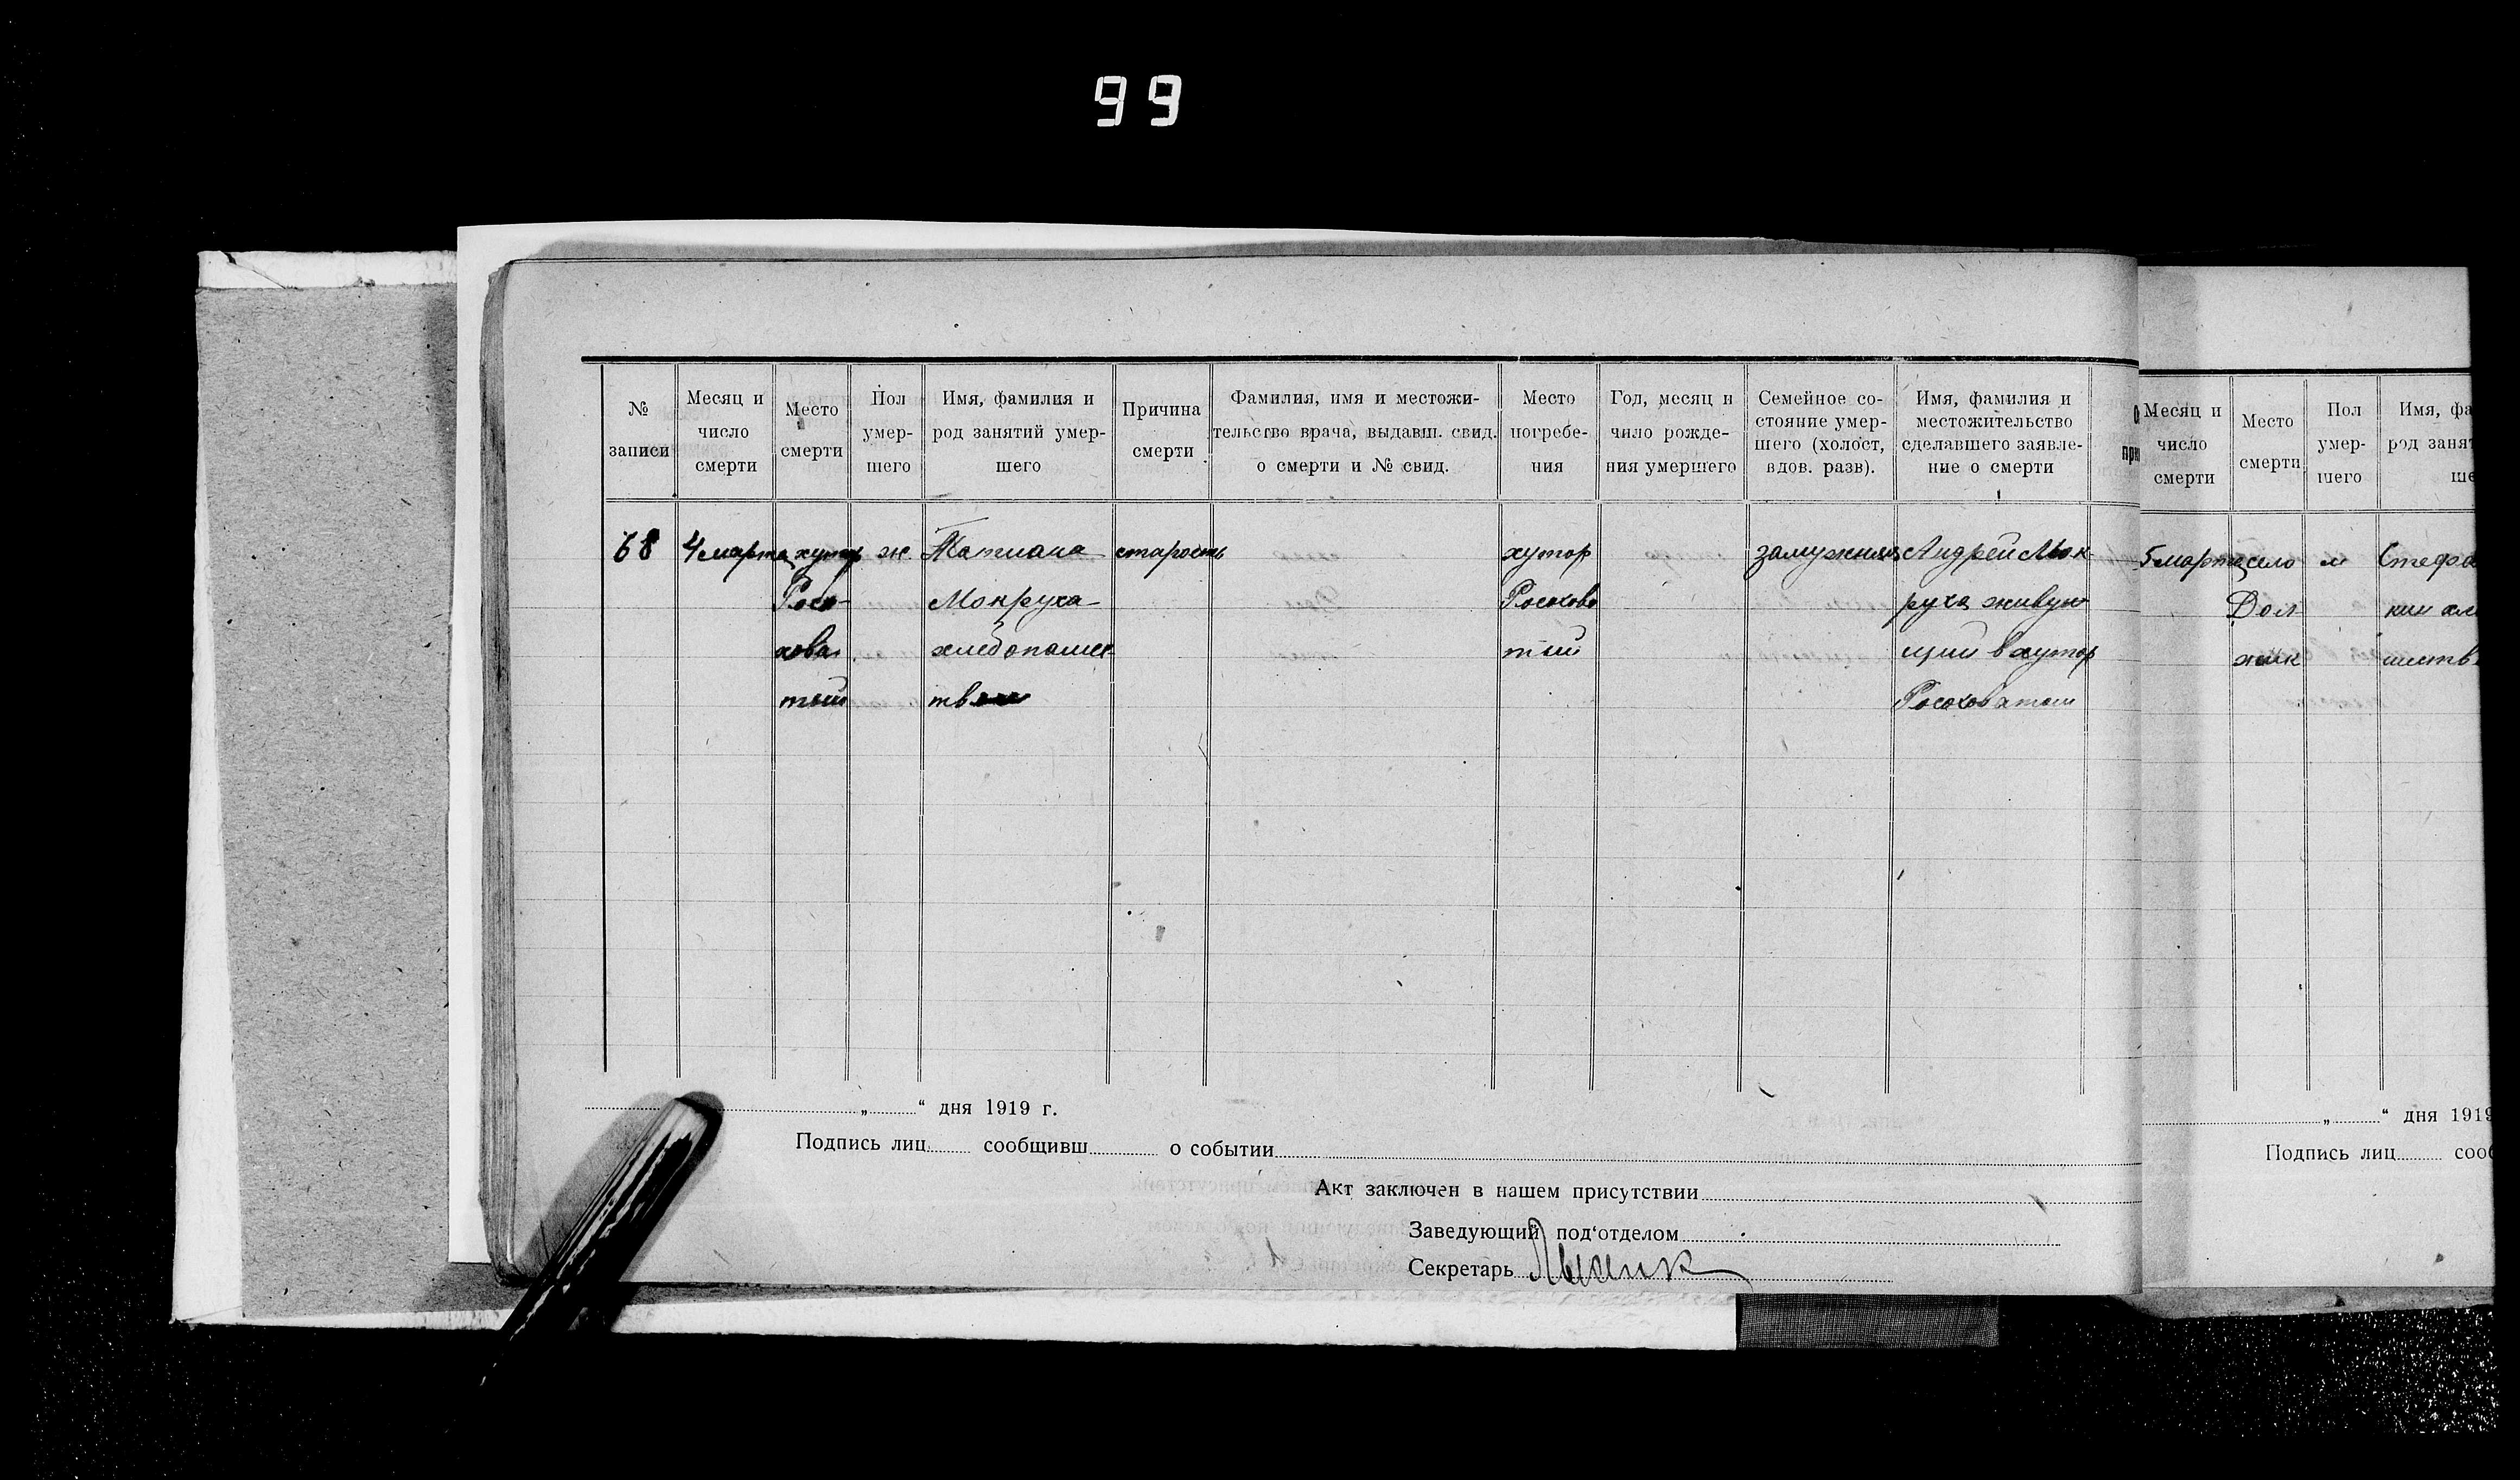 99
№ записи
Месяц и число смерти
Место смерти
Пол умер-шего
Имя, фамилия и род занятий умер-шего
Причина смерти
Фамилия, имя и местожи-тельство врача, выдавш. свид. о смерти и № свид.
Место погребе-ния
Год, месяц и число рожде-ния умершего
Семейное со-стояние умер-шего (холост, вдов. разв).
Имя, фамилия и местожительство сделавшего заявле-ние о смерти
68
4 марта
хутор
Росо-
хова
тый
ж.
Татиана
Мокруха
хлебопашес
тв
старость
хутор
Росохова
тый
замужняя
Андрей Мок
руха живую
щий в хутор
Росоховатом
„ “ дня 1919 г.
Подпись лиц сообщивш о событии
Акт заключен в нашем присутствии
Заведующий под‘отделом
Секретарь
Месяц и число смерти
Место смерти
Пол умер-шего
Имя, фа
род занят
ше
5 марта
село
Дол
жик
м
Стефа
кин хле
шеств
„ “ дня 1919
Подпись лиц сооб